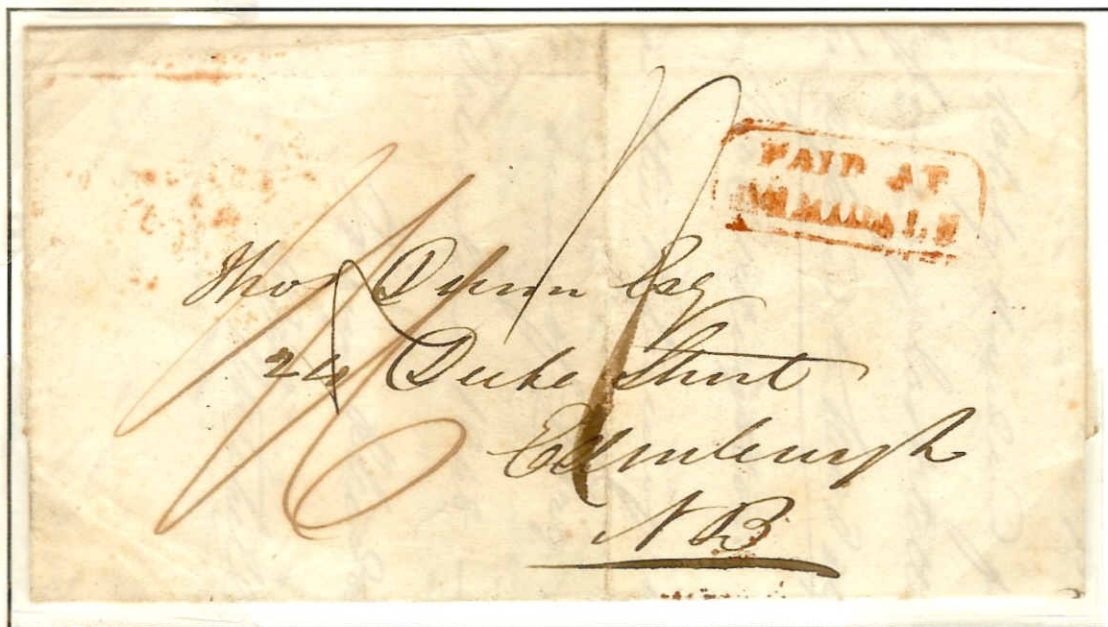 PAID AT
Thos Dunn Esq
24 Duke Street
Edinburgh
N B